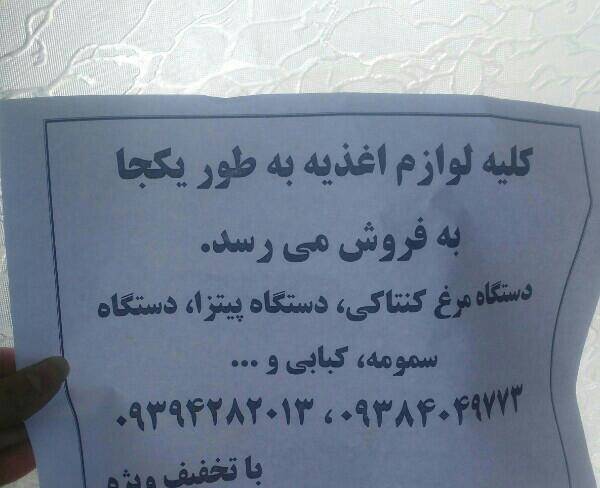 کلیه لوازم اغذیه به طور یکجا
به فروش می رسد.
دستگاه مرغ کنتاکی، دستگاه پیتزا، دستگاه
سمومه، کبابی و ...
۰۹۳۸۴۰۴۹۷۷۳ ، ۰۹۳۹۴۲۸۲۰۱۳
با تخفیف ویژه